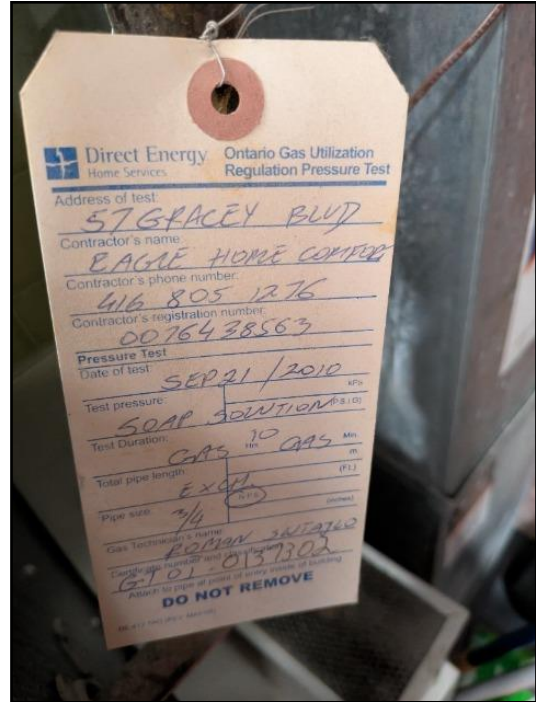 Direct Energy Ontario Gas Utilization
Home Services Regulation Pressure Test
Address of test:
57 GRACEY BLVD
Contractor's name:
EAGLE HOME COMFOR
Contractor's phone number:
416 805 1276
Contractor's registration number:
0076438563
Pressure Test
Date of test:
SEP 21 / 2010
Test pressure: kPa
SOAP SOLUTION (P.S.I.G)
Test Duration: 10 Min
GAS Hrs GAS
Total pipe length: m
EXCH. (Ft.)
Pipe size: N.P.S (inches)
3/4
Gas Technician's name
ROMAN
Certificate number and classification
GT 01-0137302
Attach to pipe at point of entry inside of building
DO NOT REMOVE